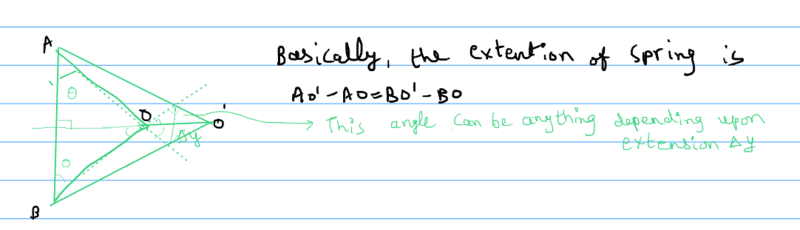 A
Basically, the extention of spring is
AO'-AO=BO'-BO
θ
O
O'
Δy
This angle can be anything depending upon
extension Δy
θ
B